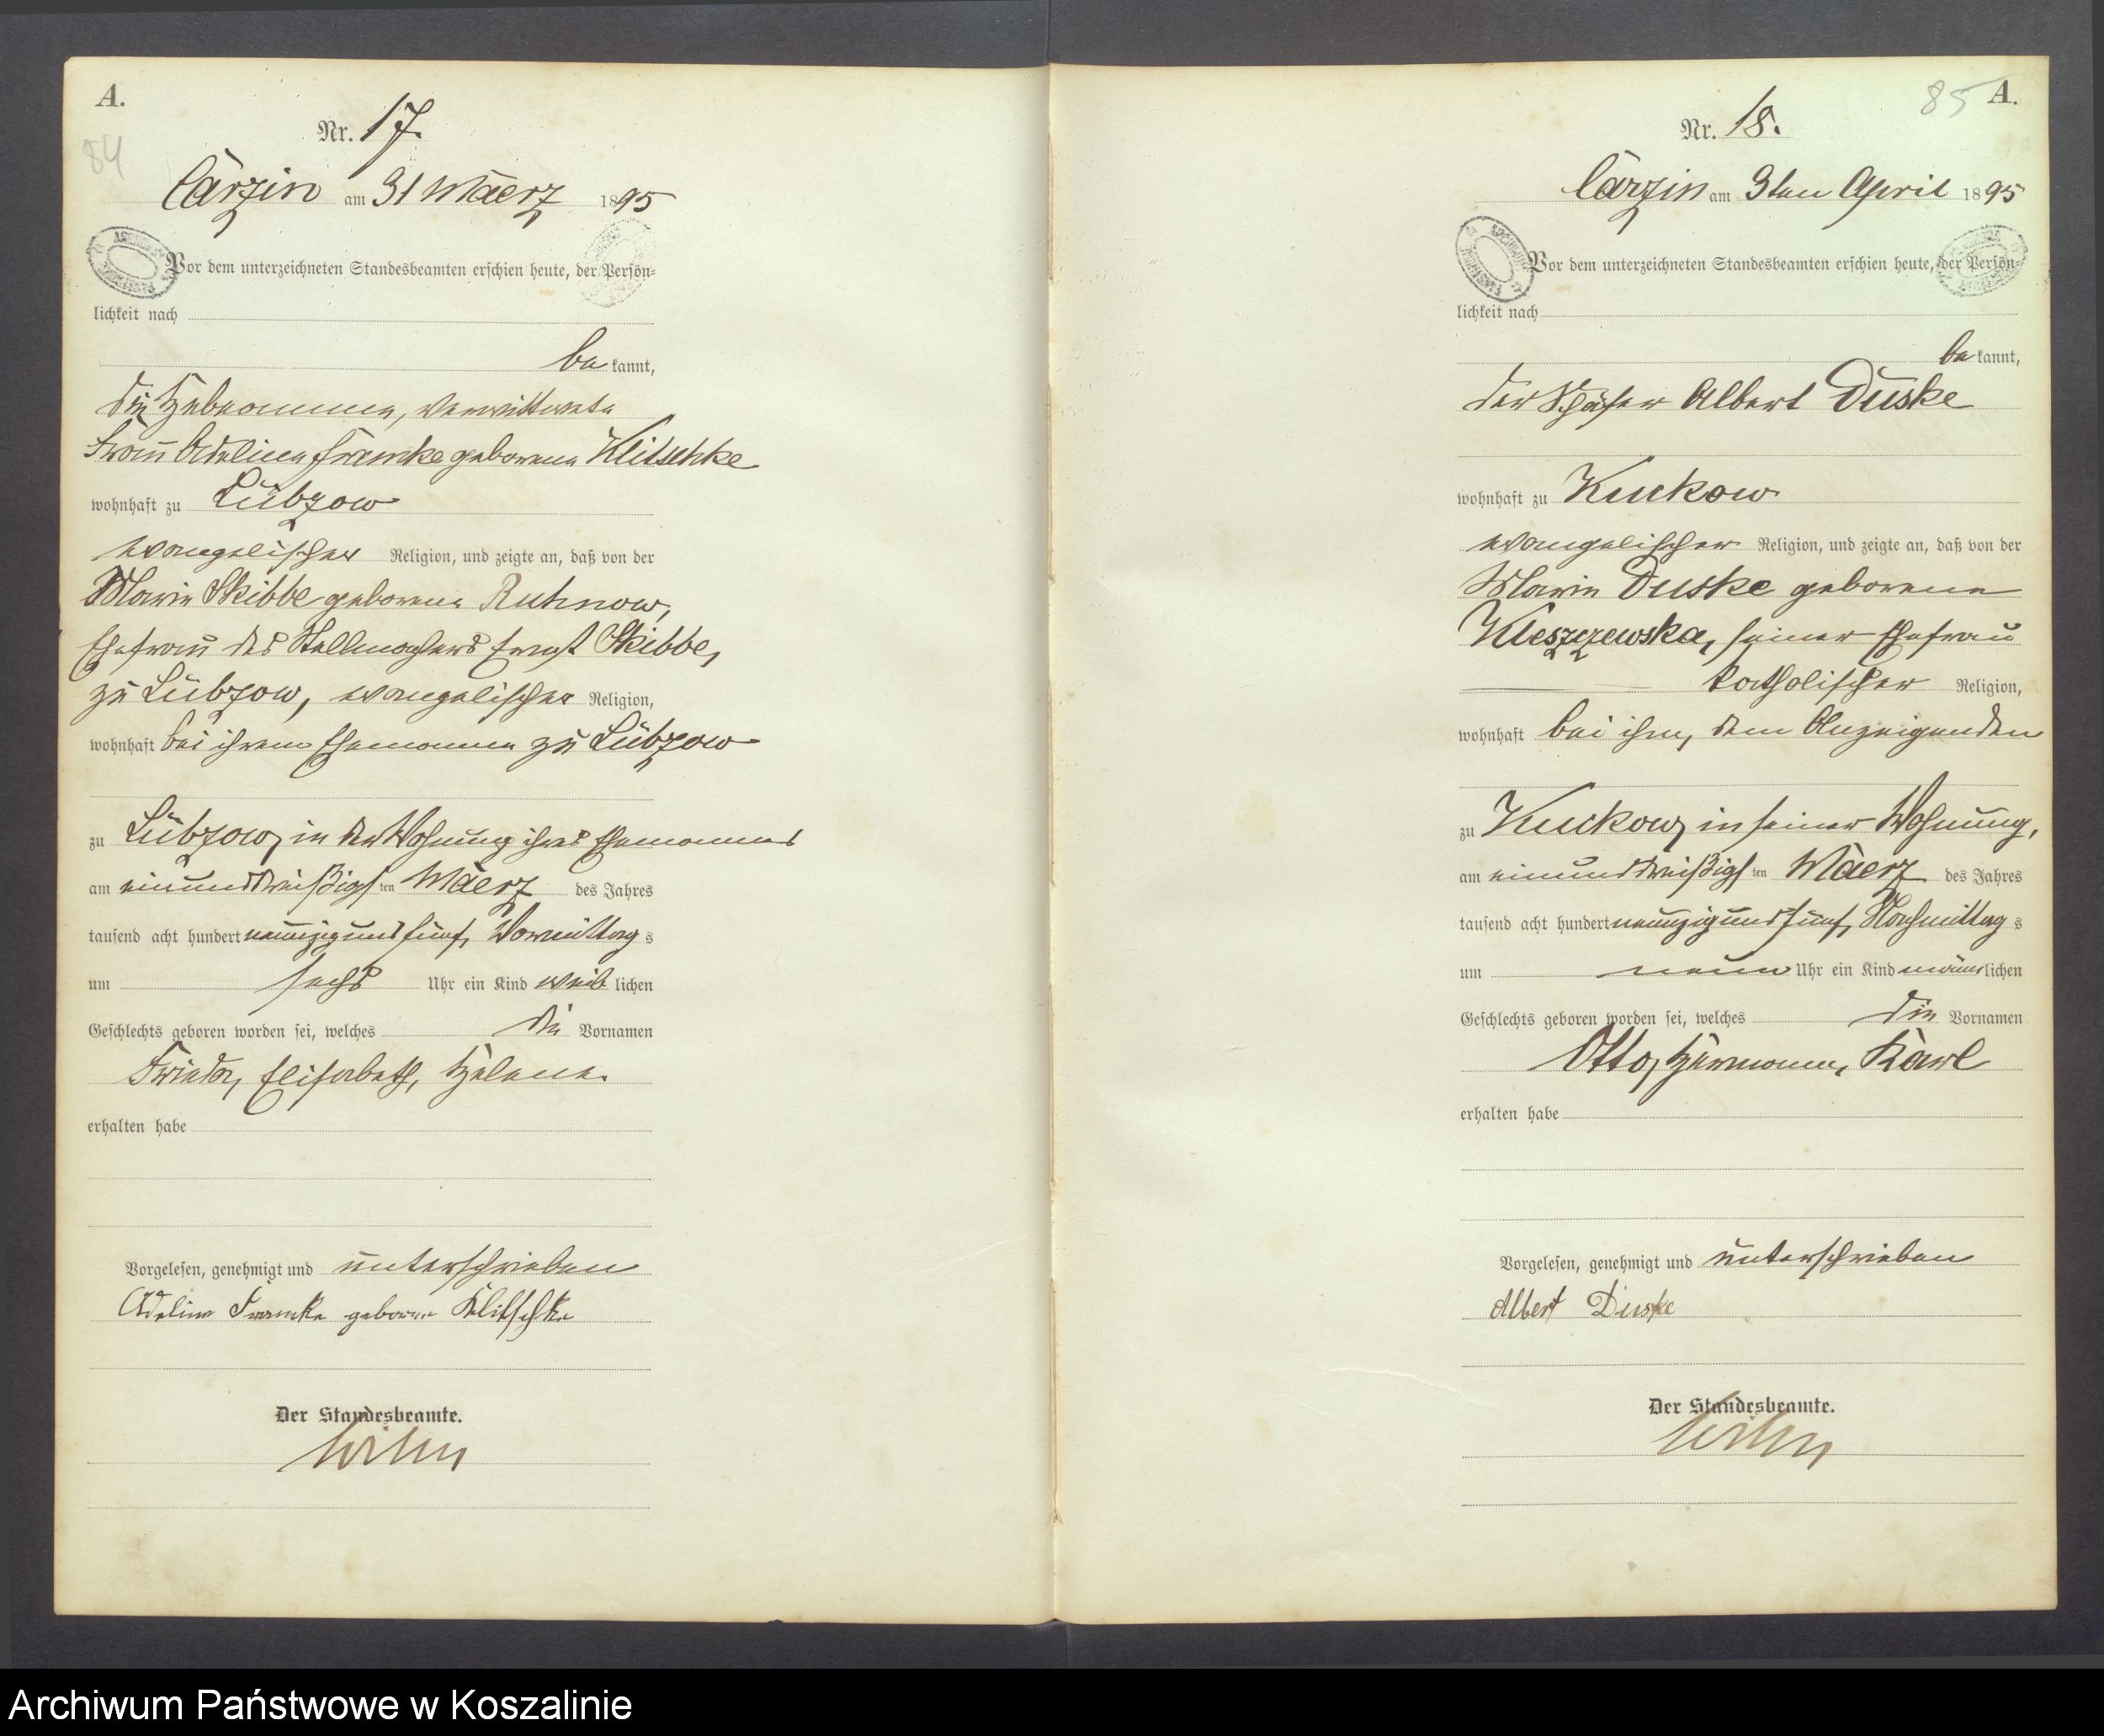 A.
84
Nr. 17.
Carzin am 31 Maerz 1895
Vor dem unterzeichneten Standesbeamten erschien heute, der Persön-
lichkeit nach
be kannt,
die Hebeamme, verwittwete
Frau Adeline Framke geborene Klitschke
wohnhaft zu Lübzow
evangelischer Religion, und zeigte an, daß von der
Marie Skibbe geborene Ruhnow,
Ehefrau des Stellmachers Ernst Skibbe,
zu Lübzow, evangelischer Religion,
wohnhaft bei ihrem Ehemanne zu Lübzow
zu Lübzow, in der Wohnung ihres Ehemannes
am einunddreißigs ten Maerz des Jahres
tausend acht hundert neunzig und fünf, Vormittag s
um sechs Uhr ein Kind weib lichen
Geschlechts geboren worden sei, welches die Vornamen
Frieda, Elisabeth, Helene
erhalten habe
Vorgelesen, genehmigt und unterschrieben
Adeline Framke geborene Klitschke
Der Standesbeamte.
85 A.
Nr. 18.
Carzin am 3ten April 1895
Vor dem unterzeichneten Standesbeamten erschien heute, der Persön-
lichkeit nach
be kannt,
der Schäfer Albert Duske
wohnhaft zu Kuckow
evangelischer Religion, und zeigte an, daß von der
Marie Duske geborene
Kleszczewska, seiner Ehefrau
katholischer Religion,
wohnhaft bei ihm, dem Anzeigenden
zu Kuckow, in seiner Wohnung,
am einunddreißigs ten Maerz des Jahres
tausend acht hundert neunzig und fünf, Nachmittag s
um neun Uhr ein Kind männ lichen
Geschlechts geboren worden sei, welches die Vornamen
Otto, Hermann, Karl
erhalten habe
Vorgelesen, genehmigt und unterschrieben
Albert Duske
Der Standesbeamte.
Archiwum Państwowe w Koszalinie